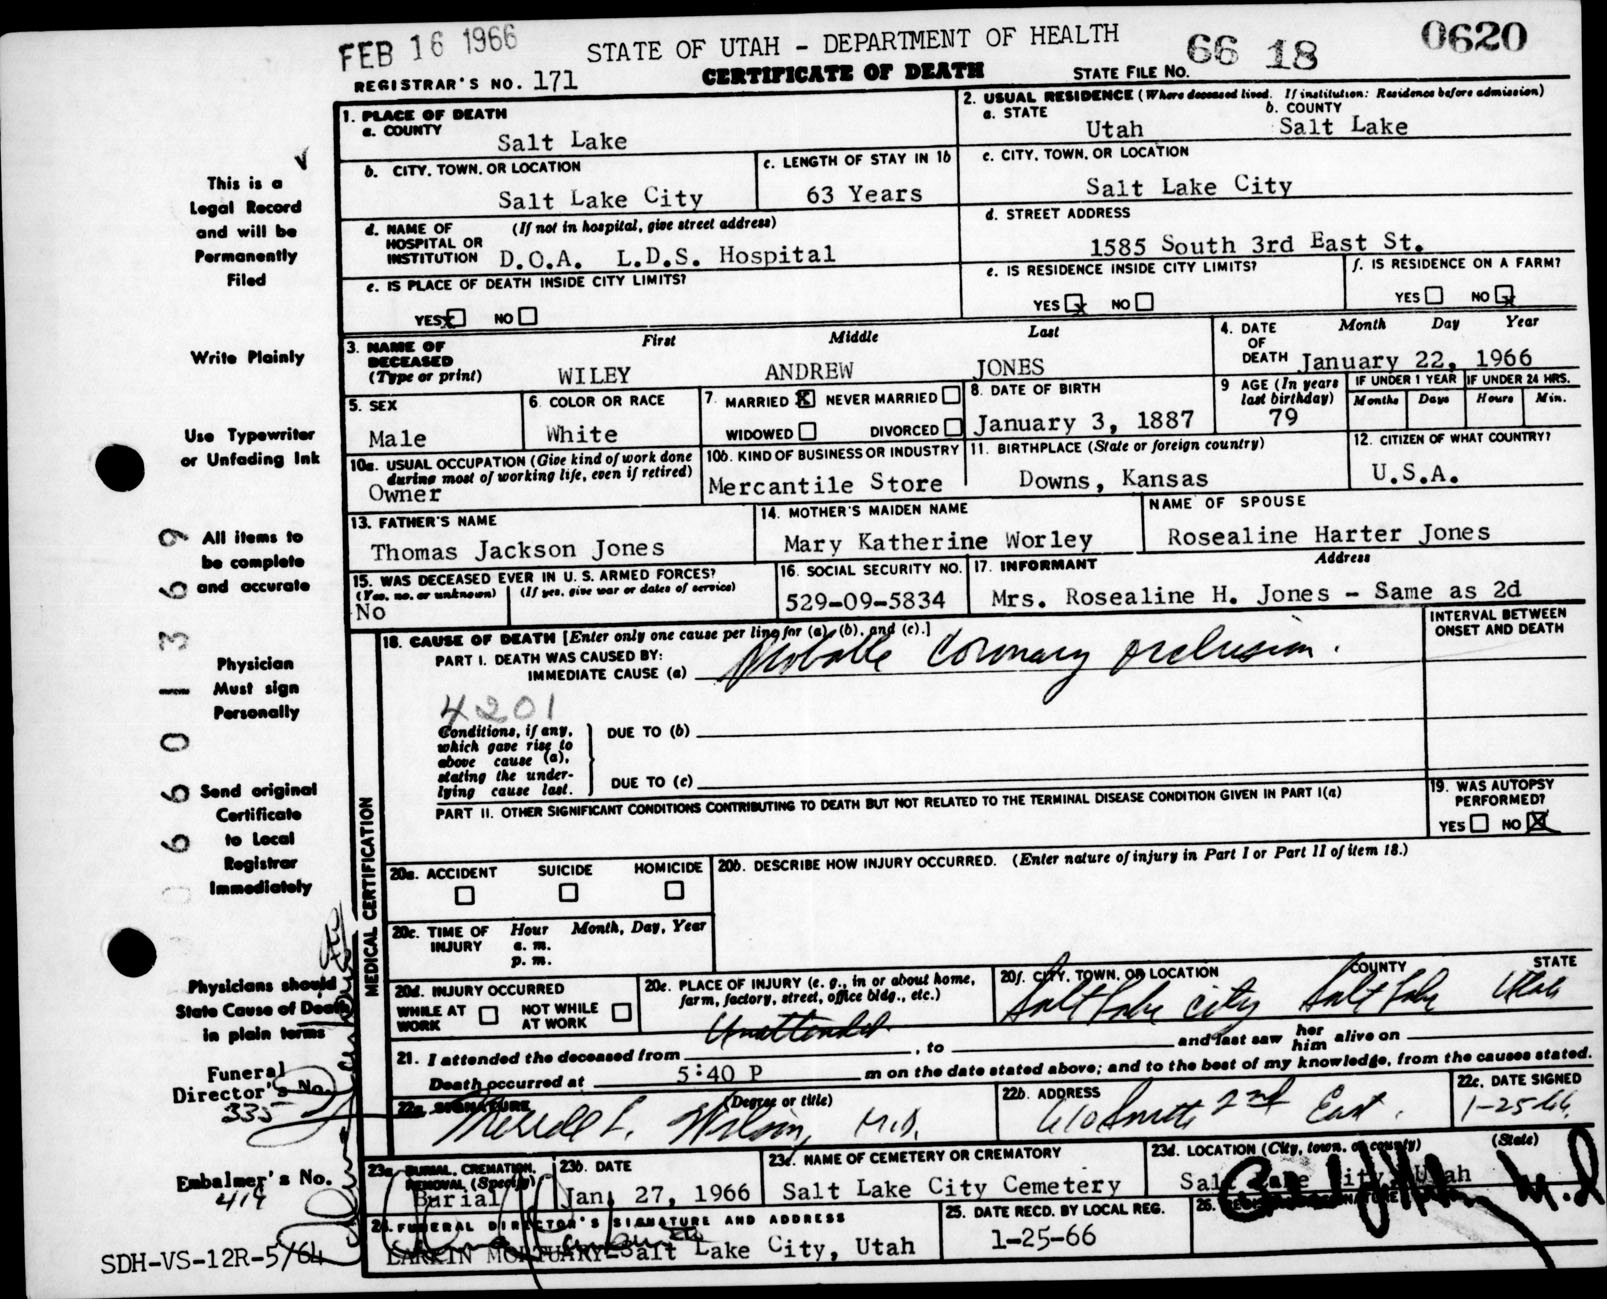 FEB 16 1966
STATE OF UTAH - DEPARTMENT OF HEALTH
66 18
0620
REGISTRAR'S NO. 171
CERTIFICATE OF DEATH
STATE FILE NO.
1. PLACE OF DEATH
a. COUNTY
Salt Lake
2. USUAL RESIDENCE (Where deceased lived. If institution: Residence before admission)
a. STATE
Utah
b. COUNTY
Salt Lake
b. CITY, TOWN, OR LOCATION
Salt Lake City
c. LENGTH OF STAY IN 1b
63 Years
c. CITY, TOWN, OR LOCATION
Salt Lake City
d. NAME OF HOSPITAL OR INSTITUTION
(If not in hospital, give street address)
D.O.A. L.D.S. Hospital
d. STREET ADDRESS
1585 South 3rd East St.
e. IS PLACE OF DEATH INSIDE CITY LIMITS?
YES x NO
e. IS RESIDENCE INSIDE CITY LIMITS?
YES x NO
f. IS RESIDENCE ON A FARM?
YES NO x
3. NAME OF DECEASED
(Type or print)
First Middle Last
WILEY ANDREW JONES
4. DATE OF DEATH
Month Day Year
January 22, 1966
5. SEX
Male
6. COLOR OR RACE
White
7. MARRIED X NEVER MARRIED
WIDOWED DIVORCED
8. DATE OF BIRTH
January 3, 1887
9 AGE (In years last birthday)
79
IF UNDER 1 YEAR
Months Days
IF UNDER 24 HRS.
Hours Min.
10a. USUAL OCCUPATION (Give kind of work done during most of working life, even if retired)
Owner
10b. KIND OF BUSINESS OR INDUSTRY
Mercantile Store
11. BIRTHPLACE (State or foreign country)
Downs, Kansas
12. CITIZEN OF WHAT COUNTRY?
U.S.A.
13. FATHER'S NAME
Thomas Jackson Jones
14. MOTHER'S MAIDEN NAME
Mary Katherine Worley
NAME OF SPOUSE
Rosealine Harter Jones
15. WAS DECEASED EVER IN U. S. ARMED FORCES?
(Yes, no, or unknown) (If yes, give war or dates of service)
No
16. SOCIAL SECURITY NO.
529-09-5834
17. INFORMANT Address
Mrs. Rosealine H. Jones - Same as 2d
MEDICAL CERTIFICATION
18. CAUSE OF DEATH [Enter only one cause per line for (a), (b), and (c).]
INTERVAL BETWEEN ONSET AND DEATH
PART I. DEATH WAS CAUSED BY:
IMMEDIATE CAUSE (a)
Probable Coronary occlusion.
4201
Conditions, if any,
which gave rise to
above cause (a),
stating the under-
lying cause last.
DUE TO (b)
DUE TO (c)
PART II. OTHER SIGNIFICANT CONDITIONS CONTRIBUTING TO DEATH BUT NOT RELATED TO THE TERMINAL DISEASE CONDITION GIVEN IN PART I(a)
19. WAS AUTOPSY PERFORMED?
YES NO X
20a. ACCIDENT SUICIDE HOMICIDE
20b. DESCRIBE HOW INJURY OCCURRED. (Enter nature of injury in Part I or Part II of item 18.)
20c. TIME OF INJURY
Hour Month, Day, Year
a. m.
p. m.
20d. INJURY OCCURRED
WHILE AT WORK NOT WHILE AT WORK
20e. PLACE OF INJURY (e. g., in or about home, farm, factory, street, office bldg., etc.)
20f. CITY, TOWN, OR LOCATION COUNTY STATE
Salt Lake City Salt Lake Utah
Unattended
21. I attended the deceased from , to and last saw her him alive on
Death occurred at 5:40 P m on the date stated above; and to the best of my knowledge, from the causes stated.
22a. SIGNATURE (Degree or title)
Merrill L. Wilson, M.D.
22b. ADDRESS
2nd East.
22c. DATE SIGNED
1-25-66
23a BURIAL, CREMATION, REMOVAL (Specify)
Burial
23b. DATE
Jan. 27, 1966
23c. NAME OF CEMETERY OR CREMATORY
Salt Lake City Cemetery
23d. LOCATION (City, town, or county) (State)
Salt Lake City, Utah
24. FUNERAL DIRECTOR'S SIGNATURE AND ADDRESS
LARKIN MORTUARY-Salt Lake City, Utah
25. DATE RECD. BY LOCAL REG.
1-25-66
26.
M.D
This is a
Legal Record
and will be
Permanently
Filed
Write Plainly
Use Typewriter
or Unfading Ink
All items to
be complete
and accurate
Physician
Must sign
Personally
Send original
Certificate
to Local
Registrar
Immediately
Physicians should
State Cause of Death
in plain terms
Funeral
Director's No.
335
Embalmer's No.
419
66013669
SDH-VS-12R-5/64